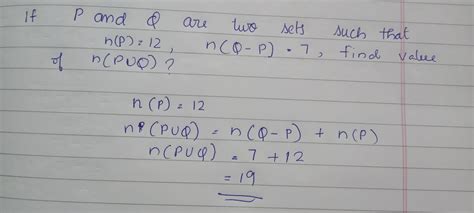 If P and Q are two sets such that
n(P) = 12 , n(Q-P) = 7, find value
of n(P∪Q) ?
n(P) = 12
n(P∪Q) = n(Q-P) + n(P)
n(P∪Q) = 7 + 12
= 19